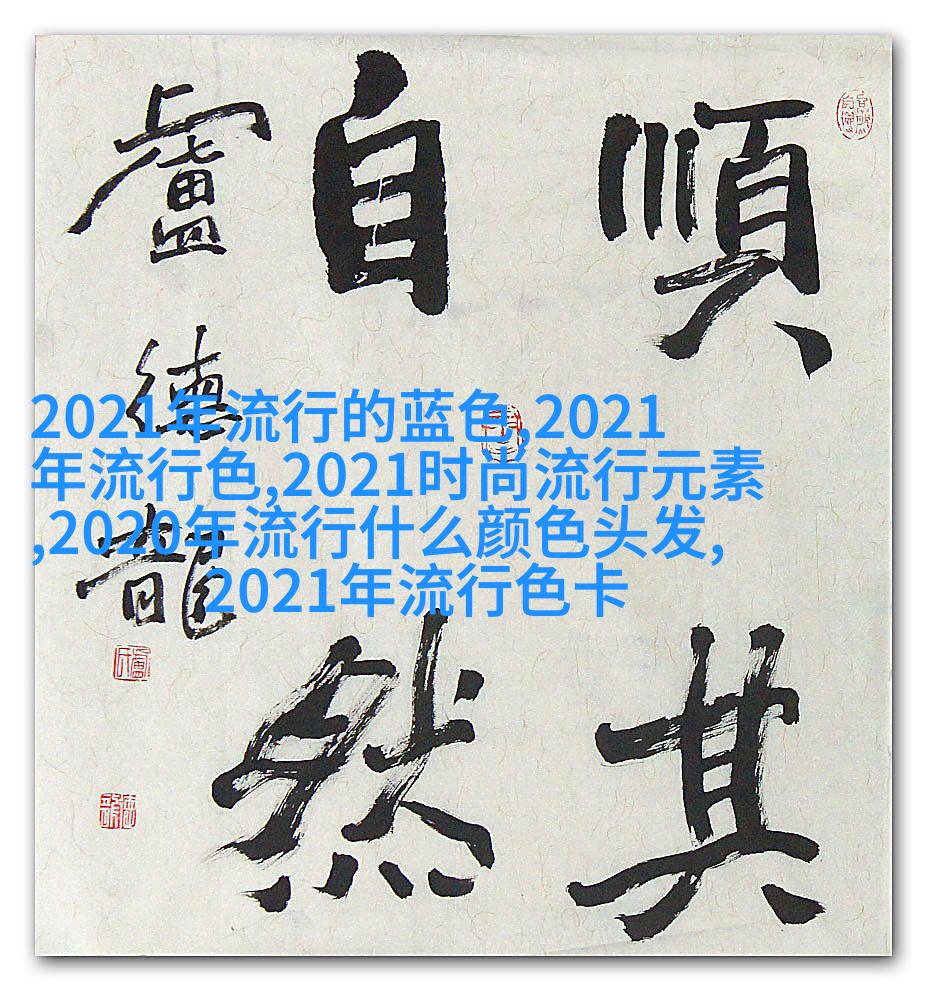 順其
自然
盧德龍
2021年流行的蓝色,2021
年流行色,2021时尚流行元素
,2020年流行什么颜色头发,
2021年流行色卡